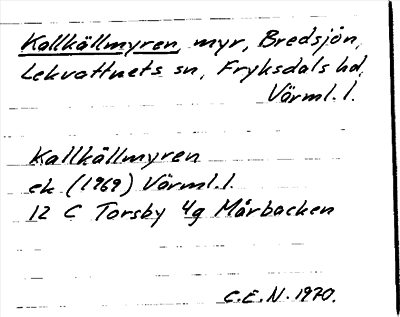 Kallkällmyren, myr, Bredsjön,
Lekvattnets sn, Fryksdals hd,
Värml. l.
Kallkällmyren
ek (1969) Värml. l.
12 C Torsby 4g Mårbacken
C.E.N. 1970.